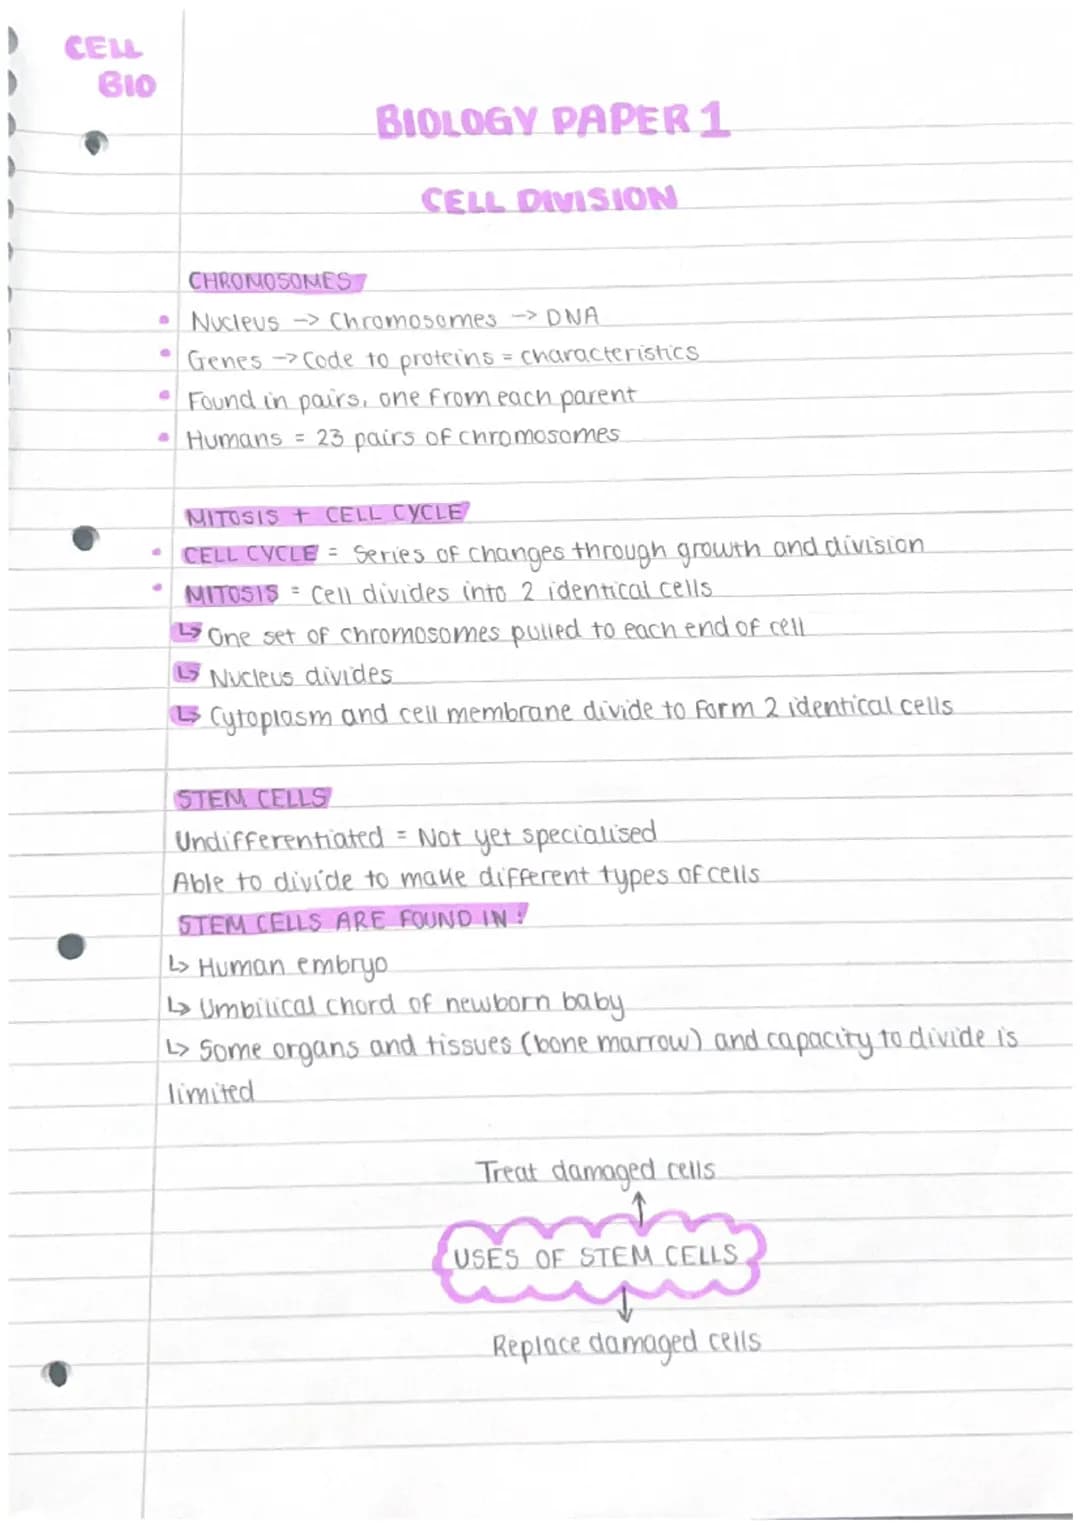 CELL
BIO
BIOLOGY PAPER 1
CELL DIVISION
CHROMOSOMES
• Nucleus -> Chromosomes -> DNA
• Genes -> Code to proteins = characteristics
• Found in pairs, one from each parent
• Humans = 23 pairs of chromosomes
MITOSIS + CELL CYCLE
• CELL CYCLE = Series of changes through growth and division
• MITOSIS = Cell divides into 2 identical cells
↳ One set of chromosomes pulled to each end of cell
↳ Nucleus divides
↳ Cytoplasm and cell membrane divide to form 2 identical cells
STEM CELLS
Undifferentiated = Not yet specialised
Able to divide to make different types of cells
STEM CELLS ARE FOUND IN:
↳ Human embryo
↳ Umbilical chord of newborn baby
↳ Some organs and tissues (bone marrow) and capacity to divide is
limited
Treat damaged cells
↑
USES OF STEM CELLS
↓
Replace damaged cells